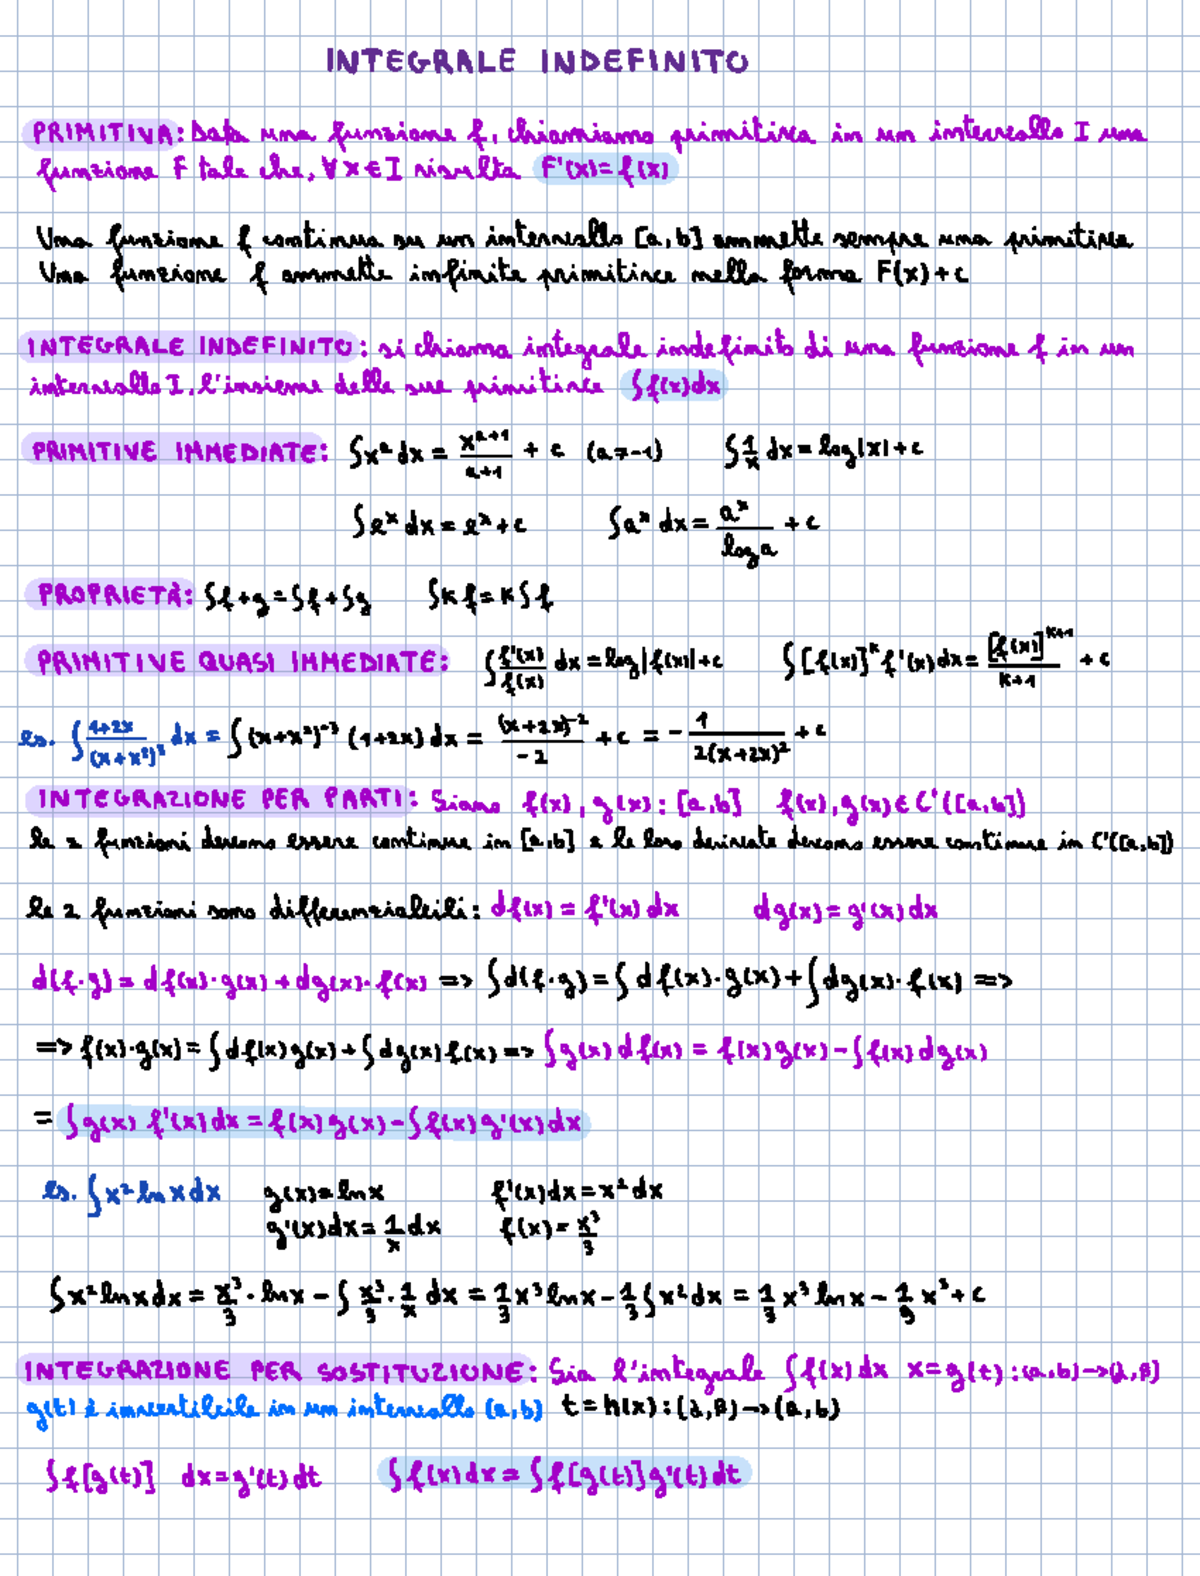 INTEGRALE INDEFINITO
PRIMITIVA: Data una funzione f, chiamiamo primitiva in un intervallo I una
funzione F tale che, ∀x∈I risulta F'(x)=f(x)
Una funzione f continua su un intervallo [a,b] ammette sempre una primitiva
Una funzione f ammette infinite primitive nella forma F(x)+c
INTEGRALE INDEFINITO: si chiama integrale indefinito di una funzione f in un
intervallo I, l'insieme delle sue primitive ∫f(x)dx
PRIMITIVE IMMEDIATE: ∫xᵃdx = xᵃ⁺¹/a+1 + c (a≠-1) ∫1/x dx = log|x|+c
∫eˣdx = eˣ+c ∫aˣdx = aˣ/log a + c
PROPRIETÀ: ∫f+g=∫f+∫g ∫kf=k∫f
PRIMITIVE QUASI IMMEDIATE: ∫f'(x)/f(x) dx = log|f(x)|+c ∫[f(x)]ᵏf'(x)dx = [f(x)]ᵏ⁺¹/k+1 + c
es. ∫1+2x/(x+x²)³ dx = ∫(x+x²)⁻³(1+2x)dx = (x+2x)⁻²/-2 + c = -1/2(x+2x)² + c
INTEGRAZIONE PER PARTI: Siano f(x), g(x): [a,b] f(x), g(x)∈C'([a,b])
le 2 funzioni devono essere continue in [a,b] e le loro derivate devono essere continue in C'([a,b])
le 2 funzioni sono differenziabili: df(x) = f'(x)dx dg(x) = g'(x)dx
d(f·g) = df(x)·g(x)+dg(x)·f(x) => ∫d(f·g) = ∫df(x)·g(x)+∫dg(x)·f(x) =>
=> f(x)·g(x) = ∫df(x)g(x)+∫dg(x)f(x) => ∫g(x)df(x) = f(x)g(x)-∫f(x)dg(x)
= ∫g(x) f'(x)dx = f(x)g(x)-∫f(x)g'(x)dx
es. ∫x²lnxdx g(x)=lnx f'(x)dx=x²dx
g'(x)dx=1/x dx f(x)=x³/3
∫x²lnxdx = x³/3·lnx - ∫x³/3·1/x dx = 1/3x³lnx-1/3∫x²dx = 1/3x³lnx-1/9x³+c
INTEGRAZIONE PER SOSTITUZIONE: Sia l'integrale ∫f(x)dx x=g(t):(a,b)->(α,β)
g(t) è invertibile in un intervallo (a,b) t=h(x):(α,β)->(a,b)
∫f[g(t)] dx=g'(t)dt ∫f(x)dx = ∫f[g(t)]g'(t)dt